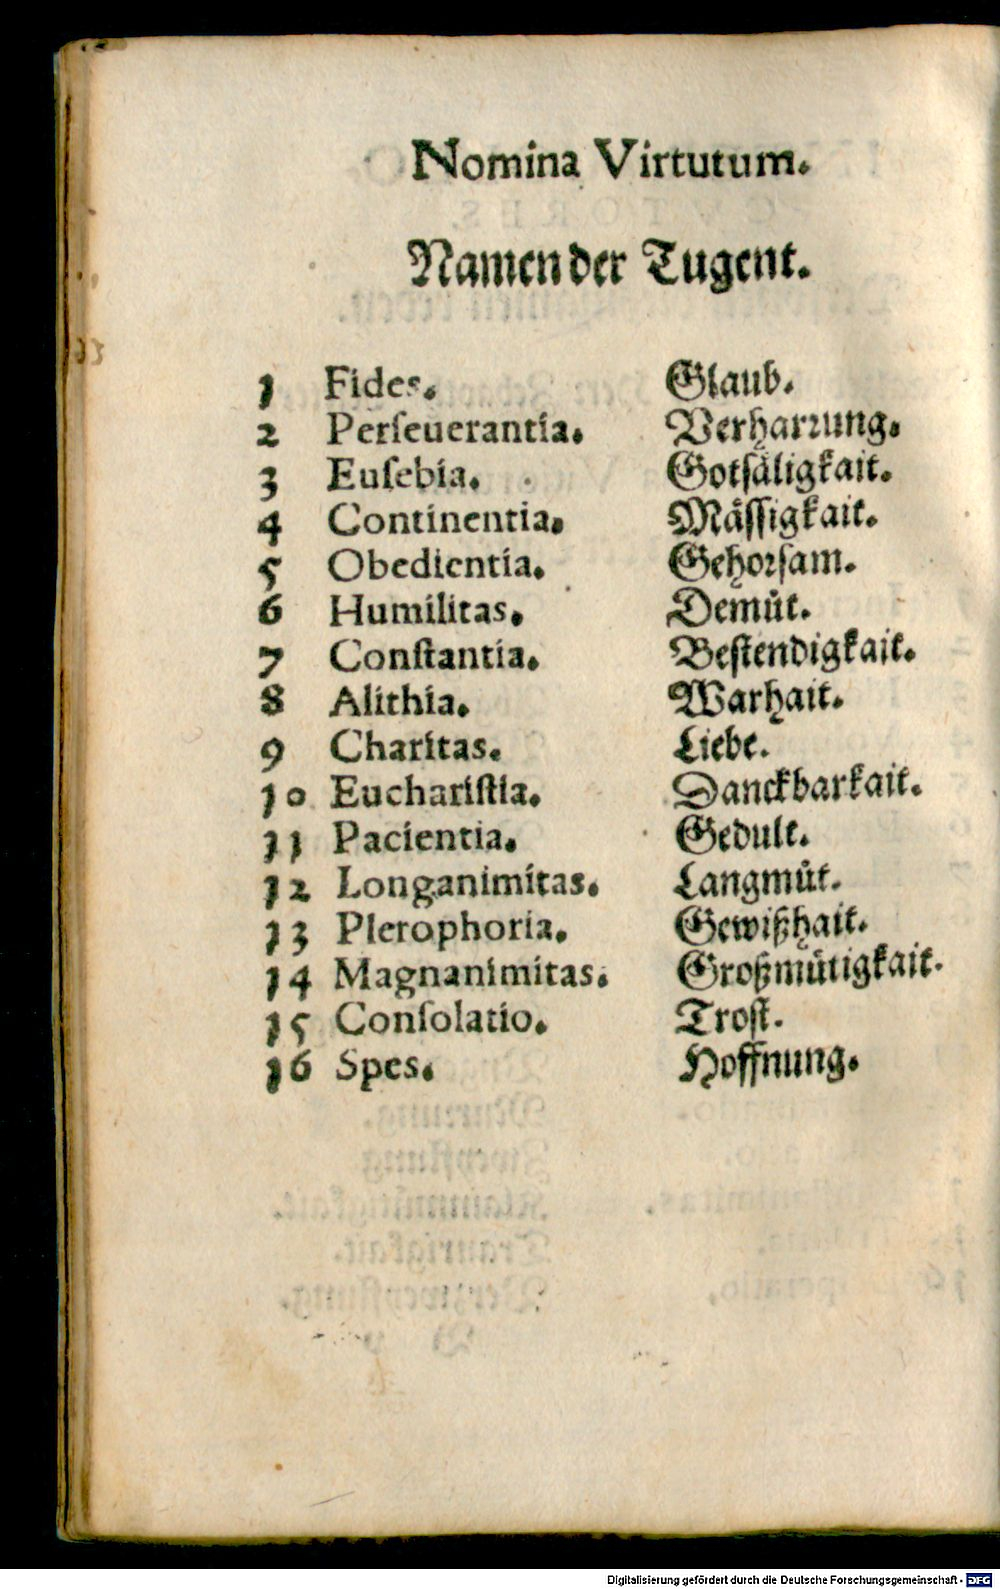 Nomina Virtutum.
Namen der Tugent.
1 Fides. Glaub.
2 Perſeuerantia. Verharꝛung.
3 Euſebia. Gotſäligkait.
4 Continentia. Mäſſigkait.
5 Obedientia. Gehoꝛſam.
6 Humilitas. Demuͤt.
7 Conſtantia. Beſtendigkait.
8 Alithia. Warhait.
9 Charitas. Liebe.
10 Euchariſtia. Danckbarkait.
11 Pacientia. Gedult.
12 Longanimitas. Langmuͤt.
13 Plerophoria. Gewißhait.
14 Magnanimitas. Großmuͤtigkait.
15 Conſolatio. Troſt.
16 Spes. Hoffnung.
Digitalisierung gefördert durch die Deutsche Forschungsgemeinschaft - DFG